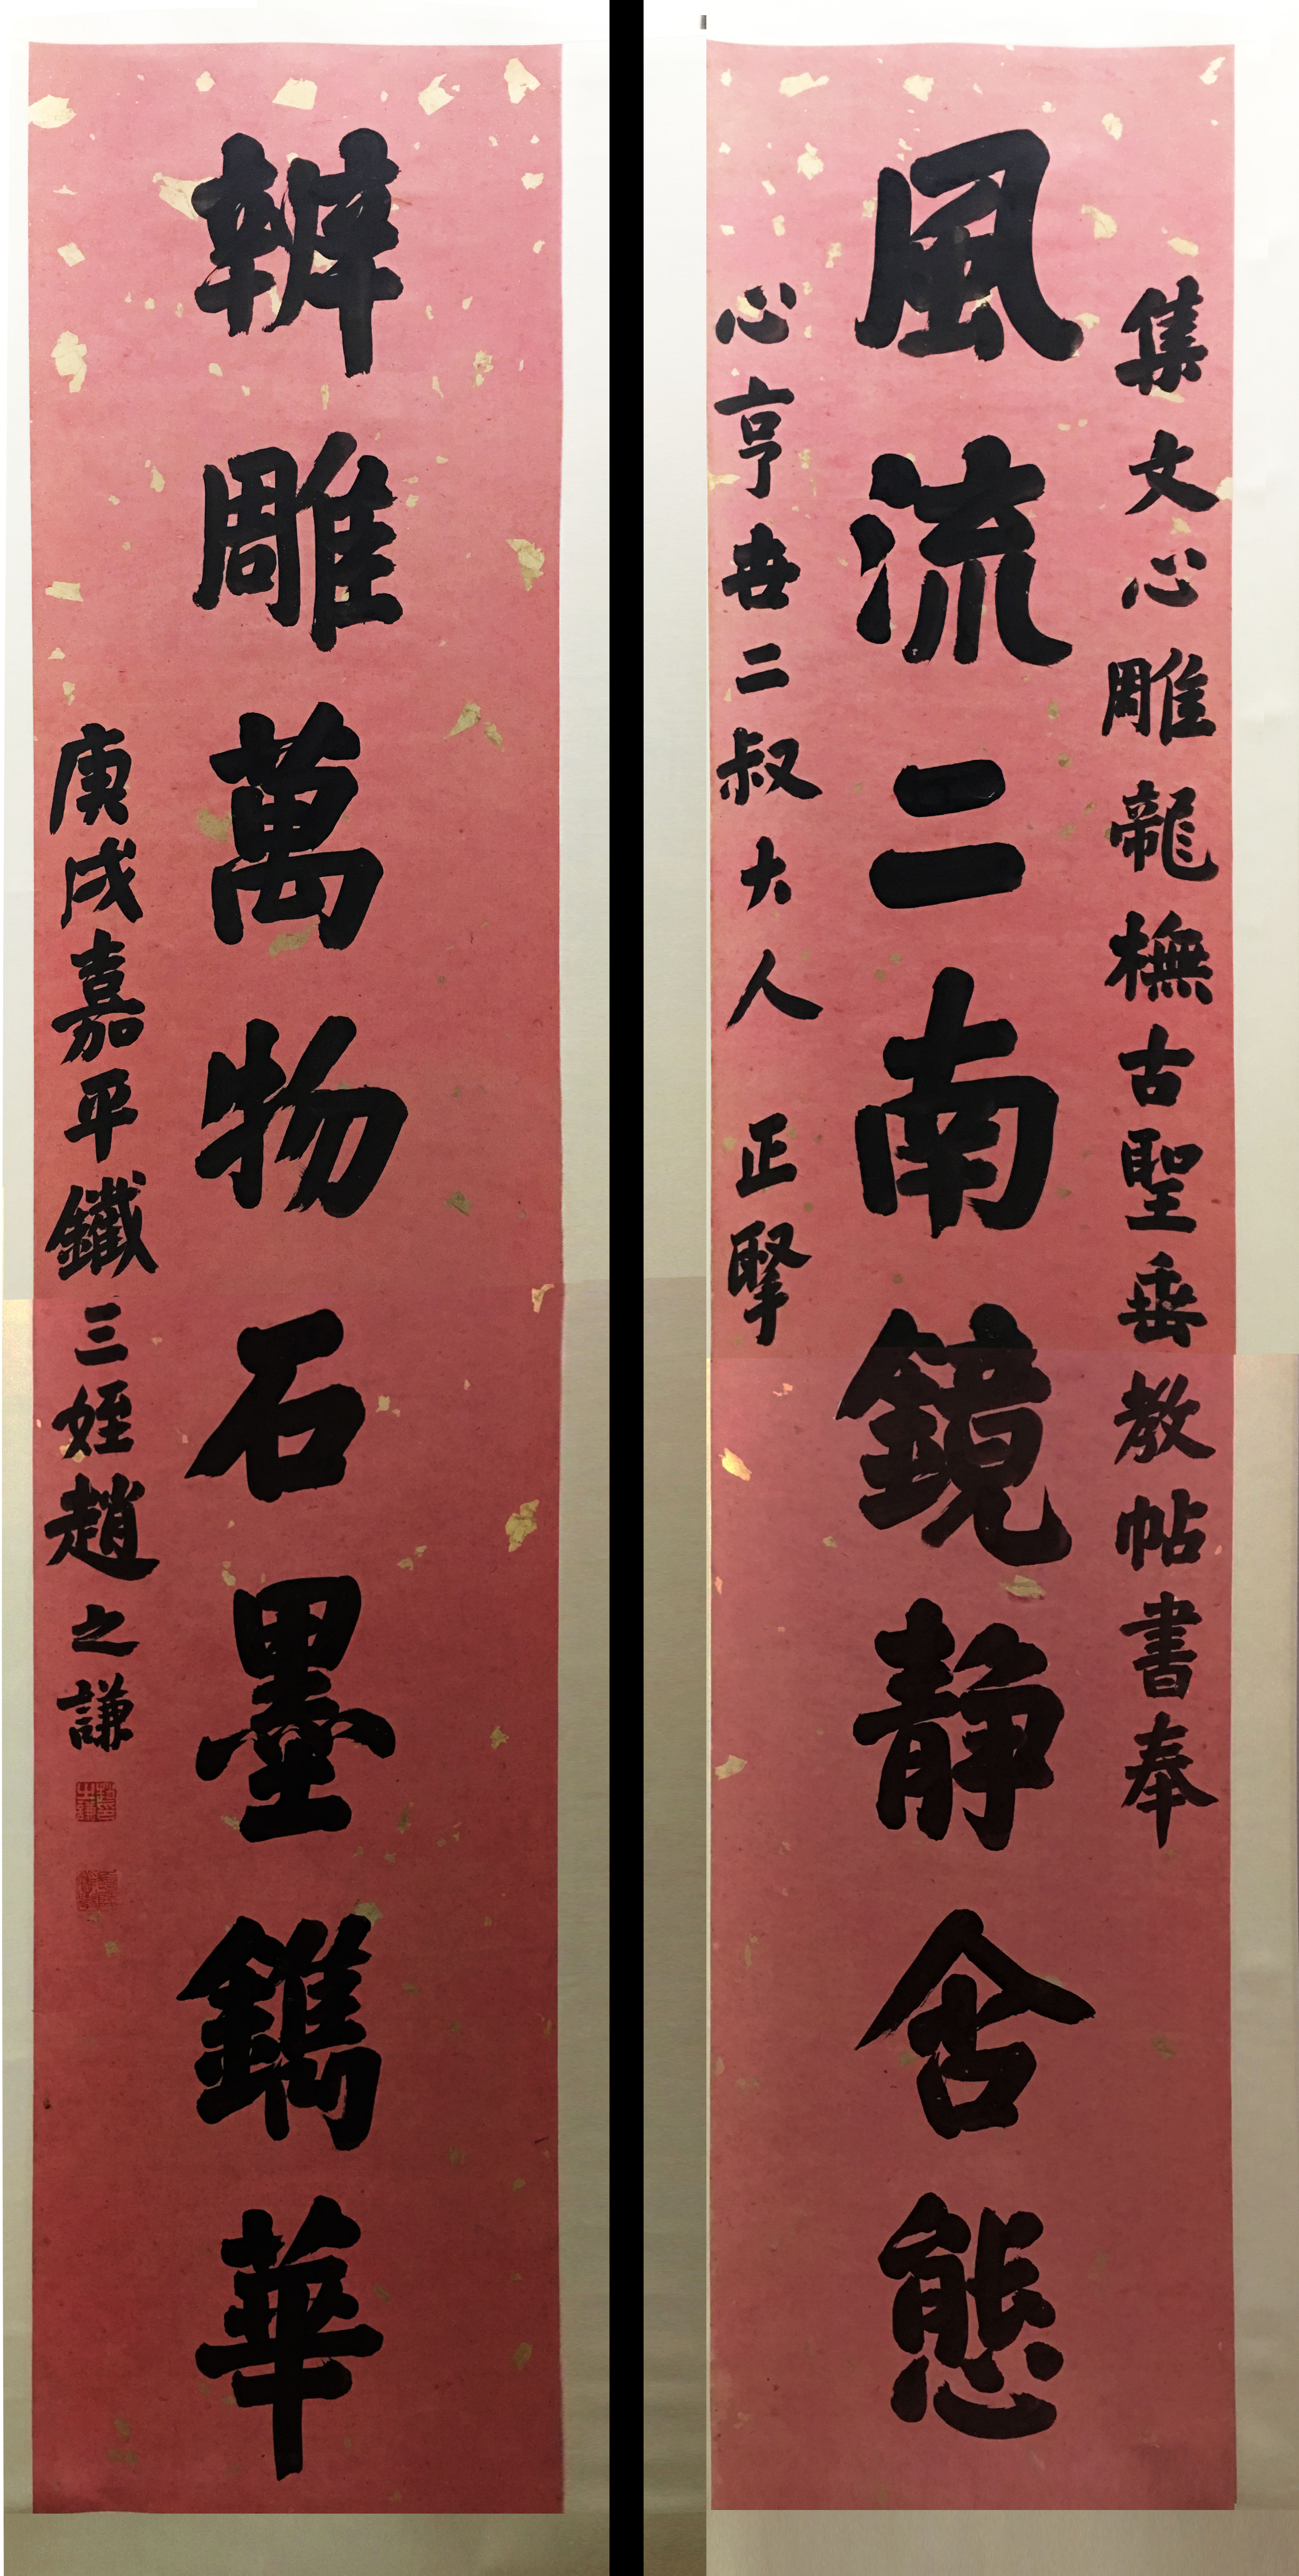 集文心雕龍橅古聖垂教帖書奉
風流二南鏡靜含態
心亨世二叔大人 正擥
辨雕萬物石墨鐫華
庚戌嘉平鐵三姪趙之謙